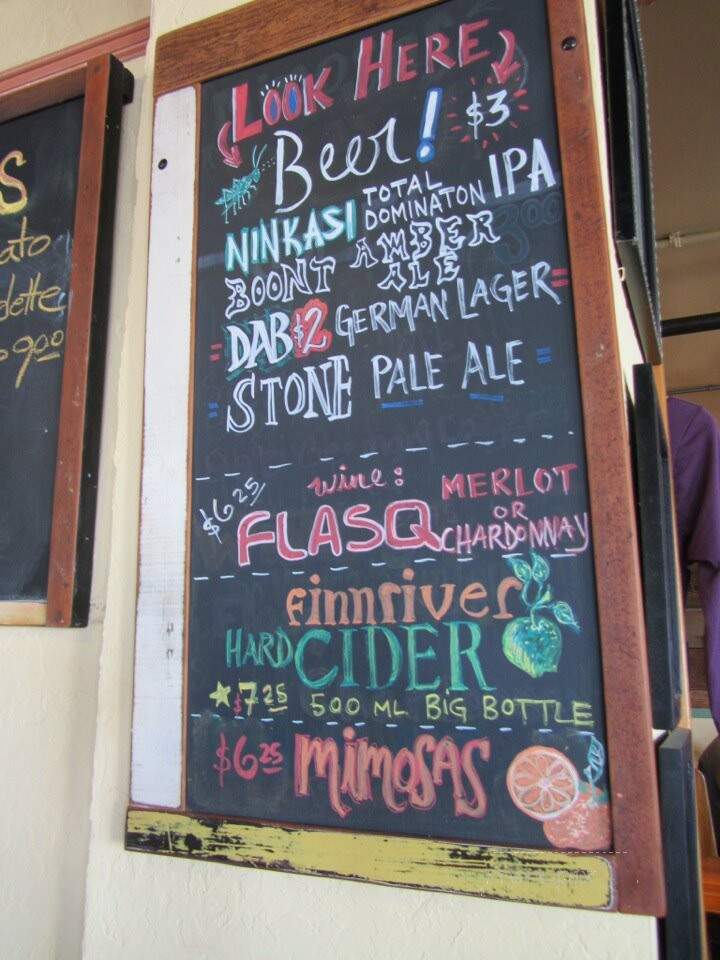 S
ato
dette
900
LOOK HERE
Beer! $3
NINKASI TOTAL DOMINATON IPA
BOONT AMBER ALE
DAB $2 GERMAN LAGER
STONE PALE ALE
$6 25 wine: MERLOT
FLASQ OR
CHARDONNAY
finnriver
HARD CIDER
$7 25 500 ML BIG BOTTLE
$6 25 MIMOSAS